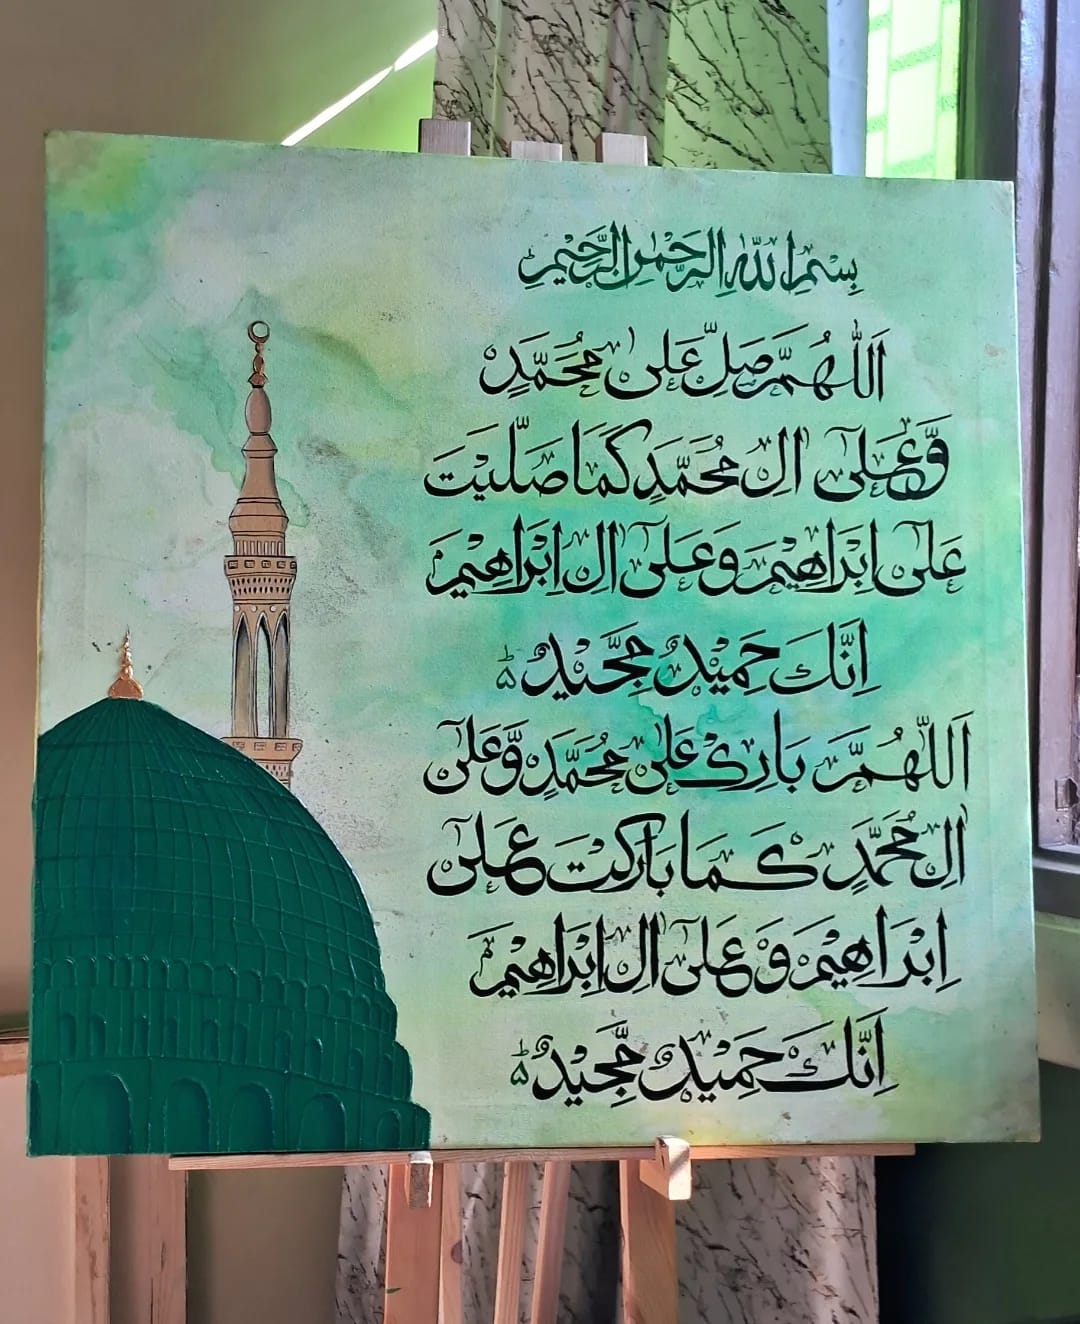 بِسْمِ اللّٰهِ الرَّحْمٰنِ الرَّحِيْمِ
اَللّٰهُمَّ صَلِّ عَلٰى مُحَمَّدٍ
وَّعَلٰٓى اٰلِ مُحَمَّدٍ كَمَا صَلَّيْتَ
عَلٰٓى اِبْرَاهِيْمَ وَعَلٰٓى اٰلِ اِبْرَاهِيْمَ
اِنَّكَ حَمِيْدٌ مَّجِيْدٌ ؕ ۵
اَللّٰهُمَّ بَارِكْ عَلٰى مُحَمَّدٍ وَّعَلٰٓى
اٰلِ مُحَمَّدٍ كَمَا بَارَكْتَ عَلٰٓى
اِبْرَاهِيْمَ وَعَلٰٓى اٰلِ اِبْرَاهِيْمَ
اِنَّكَ حَمِيْدٌ مَّجِيْدٌ ؕ ۵